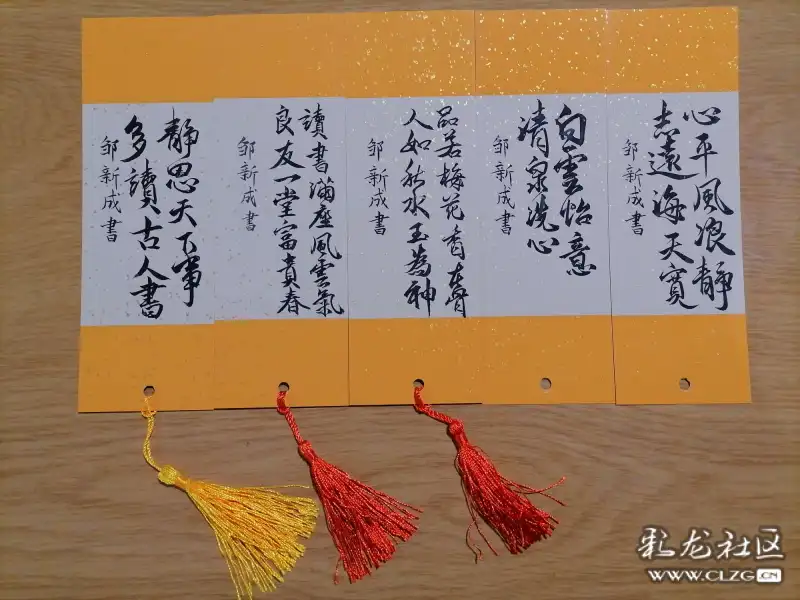 心平風浪静
志遠海天寬
邹新成書
白雲怡意
清泉洗心
邹新成書
品若梅花香在骨
人如秋水玉為神
邹新成書
讀書滿座風雲氣
良友一堂富貴春
邹新成書
静思天下事
多讀古人書
邹新成書
彩龙社区
WWW.CLZG.CN